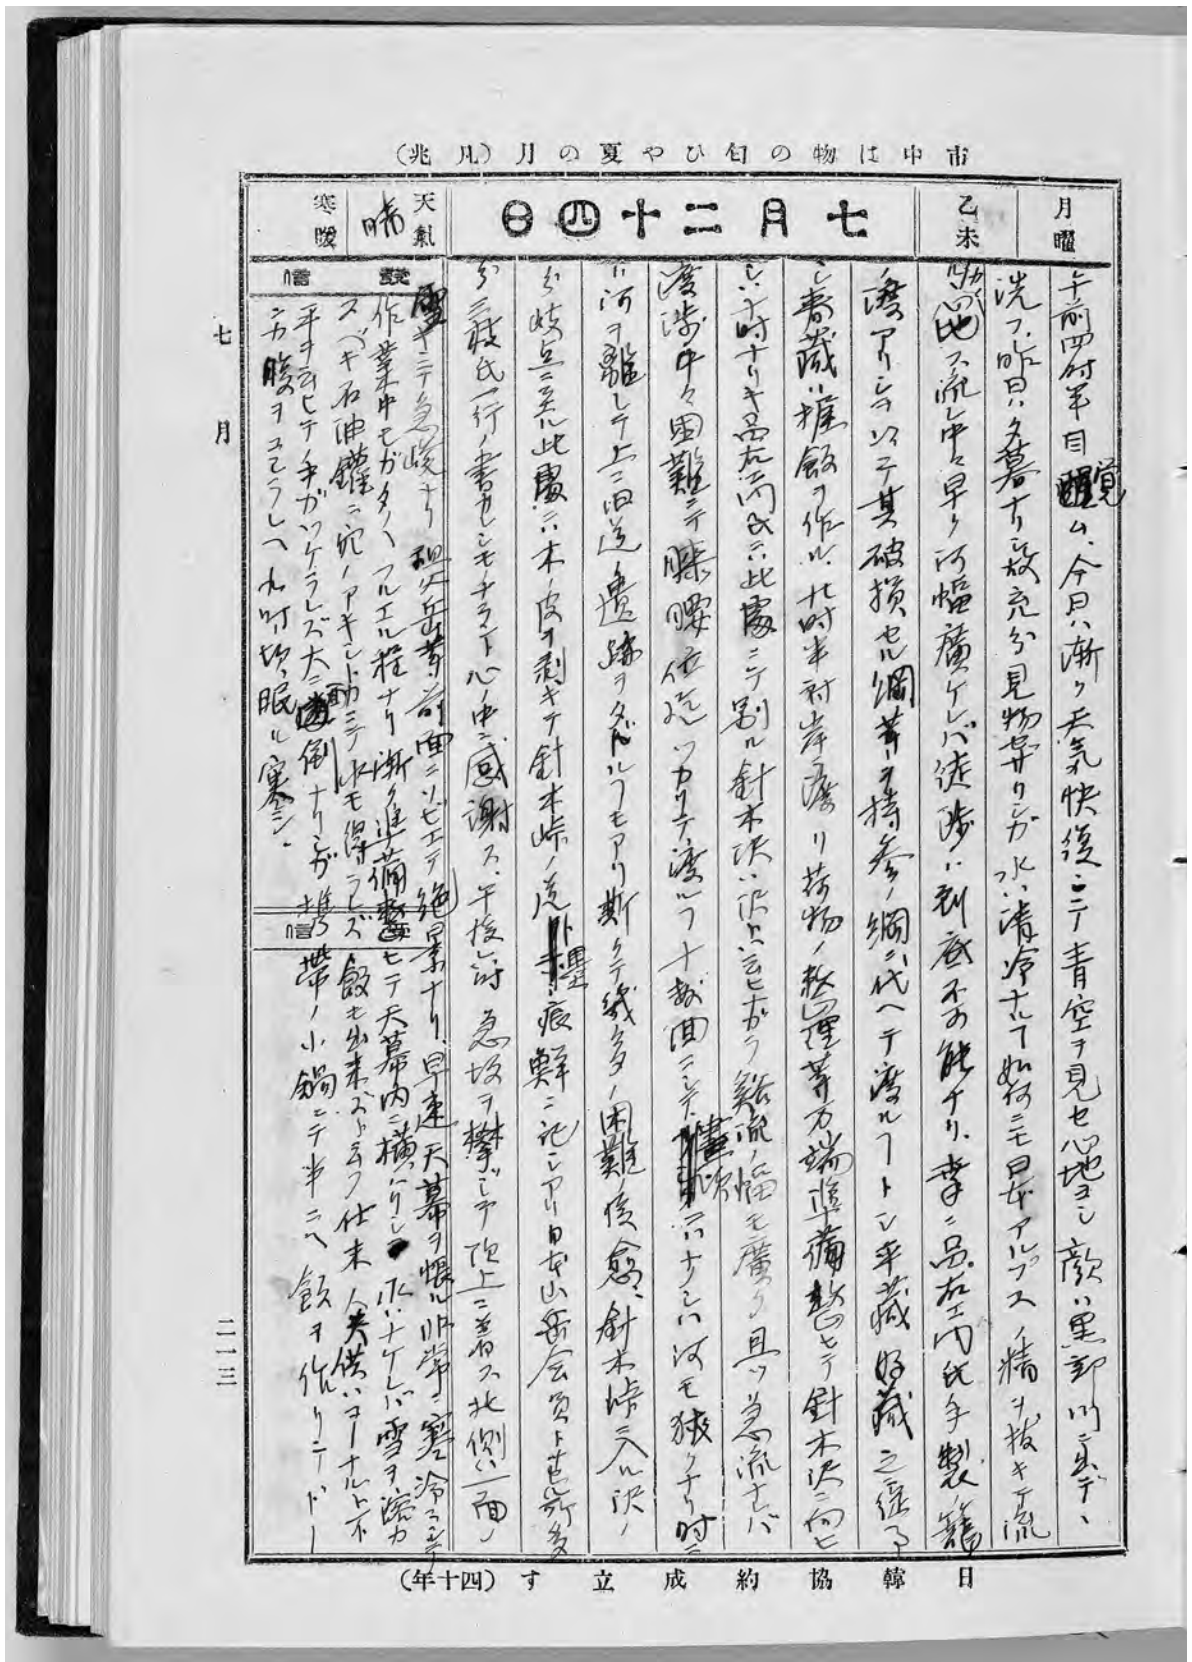 市中は物の匂ひや夏の月（凡兆）
月曜
乙未
七月二十四日
天気
晴
寒暖
午前四時半目覚ム、今日ハ漸ク天気快復シテ青空ヲ見セ心地ヨシ顔ハ黒部川ニ出デ、
洗フ、昨日ハ夕暮ナリシ故充分見物セザリシガ水ハ清冷ナルフ如何ニモ日本アルプスノ精ヲ抜キテ流
ル心地ス流レ中々早ク河幅廣ケレバ徒渉ハ到底不可能ナリ、幸ニ品右エ門氏手製ノ籠
ノ渡アリシヲ以テ其破損セル綱等ヲ持参ノ綱ニ代ヘテ渡ルフトシ平蔵 好蔵 之
シ春蔵ハ握飯ヲ作ル、九時半対岸ニ渡リ荷物ノ整理等万端準備整ヒテ針木沢ニ向ヒ
シハ十時ナリキ品右エ門氏ニハ此處ニテ別ル針木沢ハ沢トハ云ヒナガラ渓流ノ幅モ廣ク且ツ急流ナレバ
渡渉中々困難ニテ膝腰 ツカリテ渡ルフ十数回ニシテ 河モ狭クナリ時ニ
ハ河ヲ離レテ上ニ旧道ノ遺跡ヲタドルフモアリ斯クテ幾多ノ困難ノ後愈々針木峠ニ入ル沢ノ
分岐点ニ至ル此處ニハ木ノ皮ヲ剥ギテ針木峠ノ道ト墨痕鮮ニ記シアリ日本山岳会員ト
ニ 枝氏一行ノ書カレシモナラント心ノ中ニ感謝ス、午後 時 急坂ヲ攀ヂテ頂上ニ着ス北側ハ一面ノ
発信
信
雪ニテ急峻ナリ 岳等前面ニソビエテ絶景ナリ、早速天幕ヲ張ル非常ニ寒冷ニシテ
作業中モガタ〱フルエル程ナリ漸ク準備整ヒテ天幕内ニ横ハリシモ水ハナケレバ雪ヲ溶カ
スベキ石油鑵ニ穴ノアキシトカニテ水モ得ラレズ飯モ出来ズト云フ仕末人夫供ハコーナルト下
平ヲ云ヒテ手ガツケラレズ大ニ面倒ナリシガ携帯ノ小鍋ニテ半ニヘ飯ヲ作リテドー
ニカ腹ヲコシラヘ九時頃眠ル寒シ、
七月
二一三
日韓協約成立す（四十年）